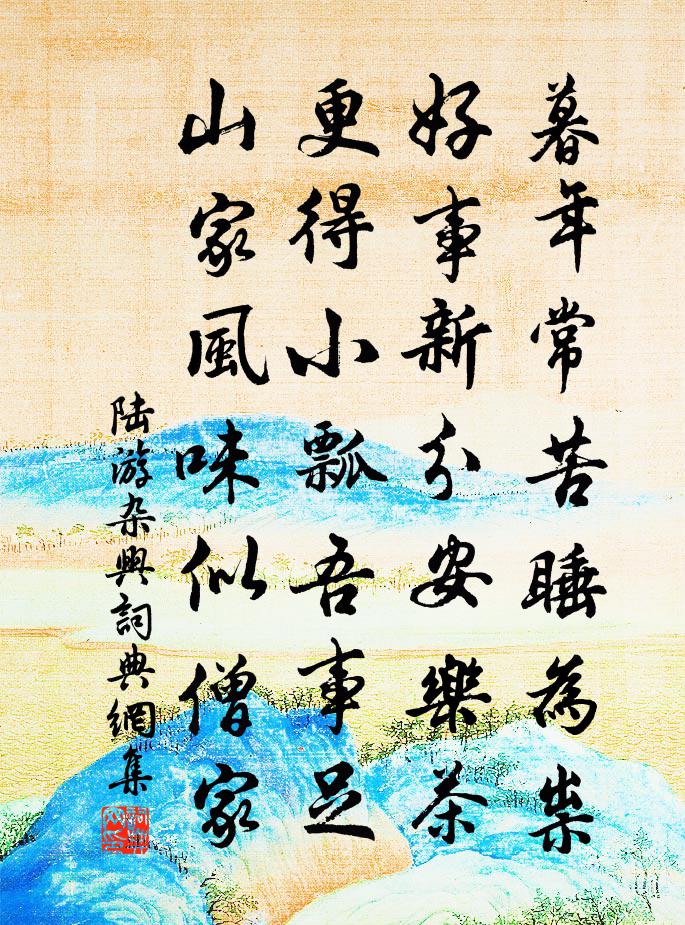 暮年常苦睡為祟
好事新分安樂茶
更得小瓢吾事足
山家風味似僧家
陆游杂興詞典網集